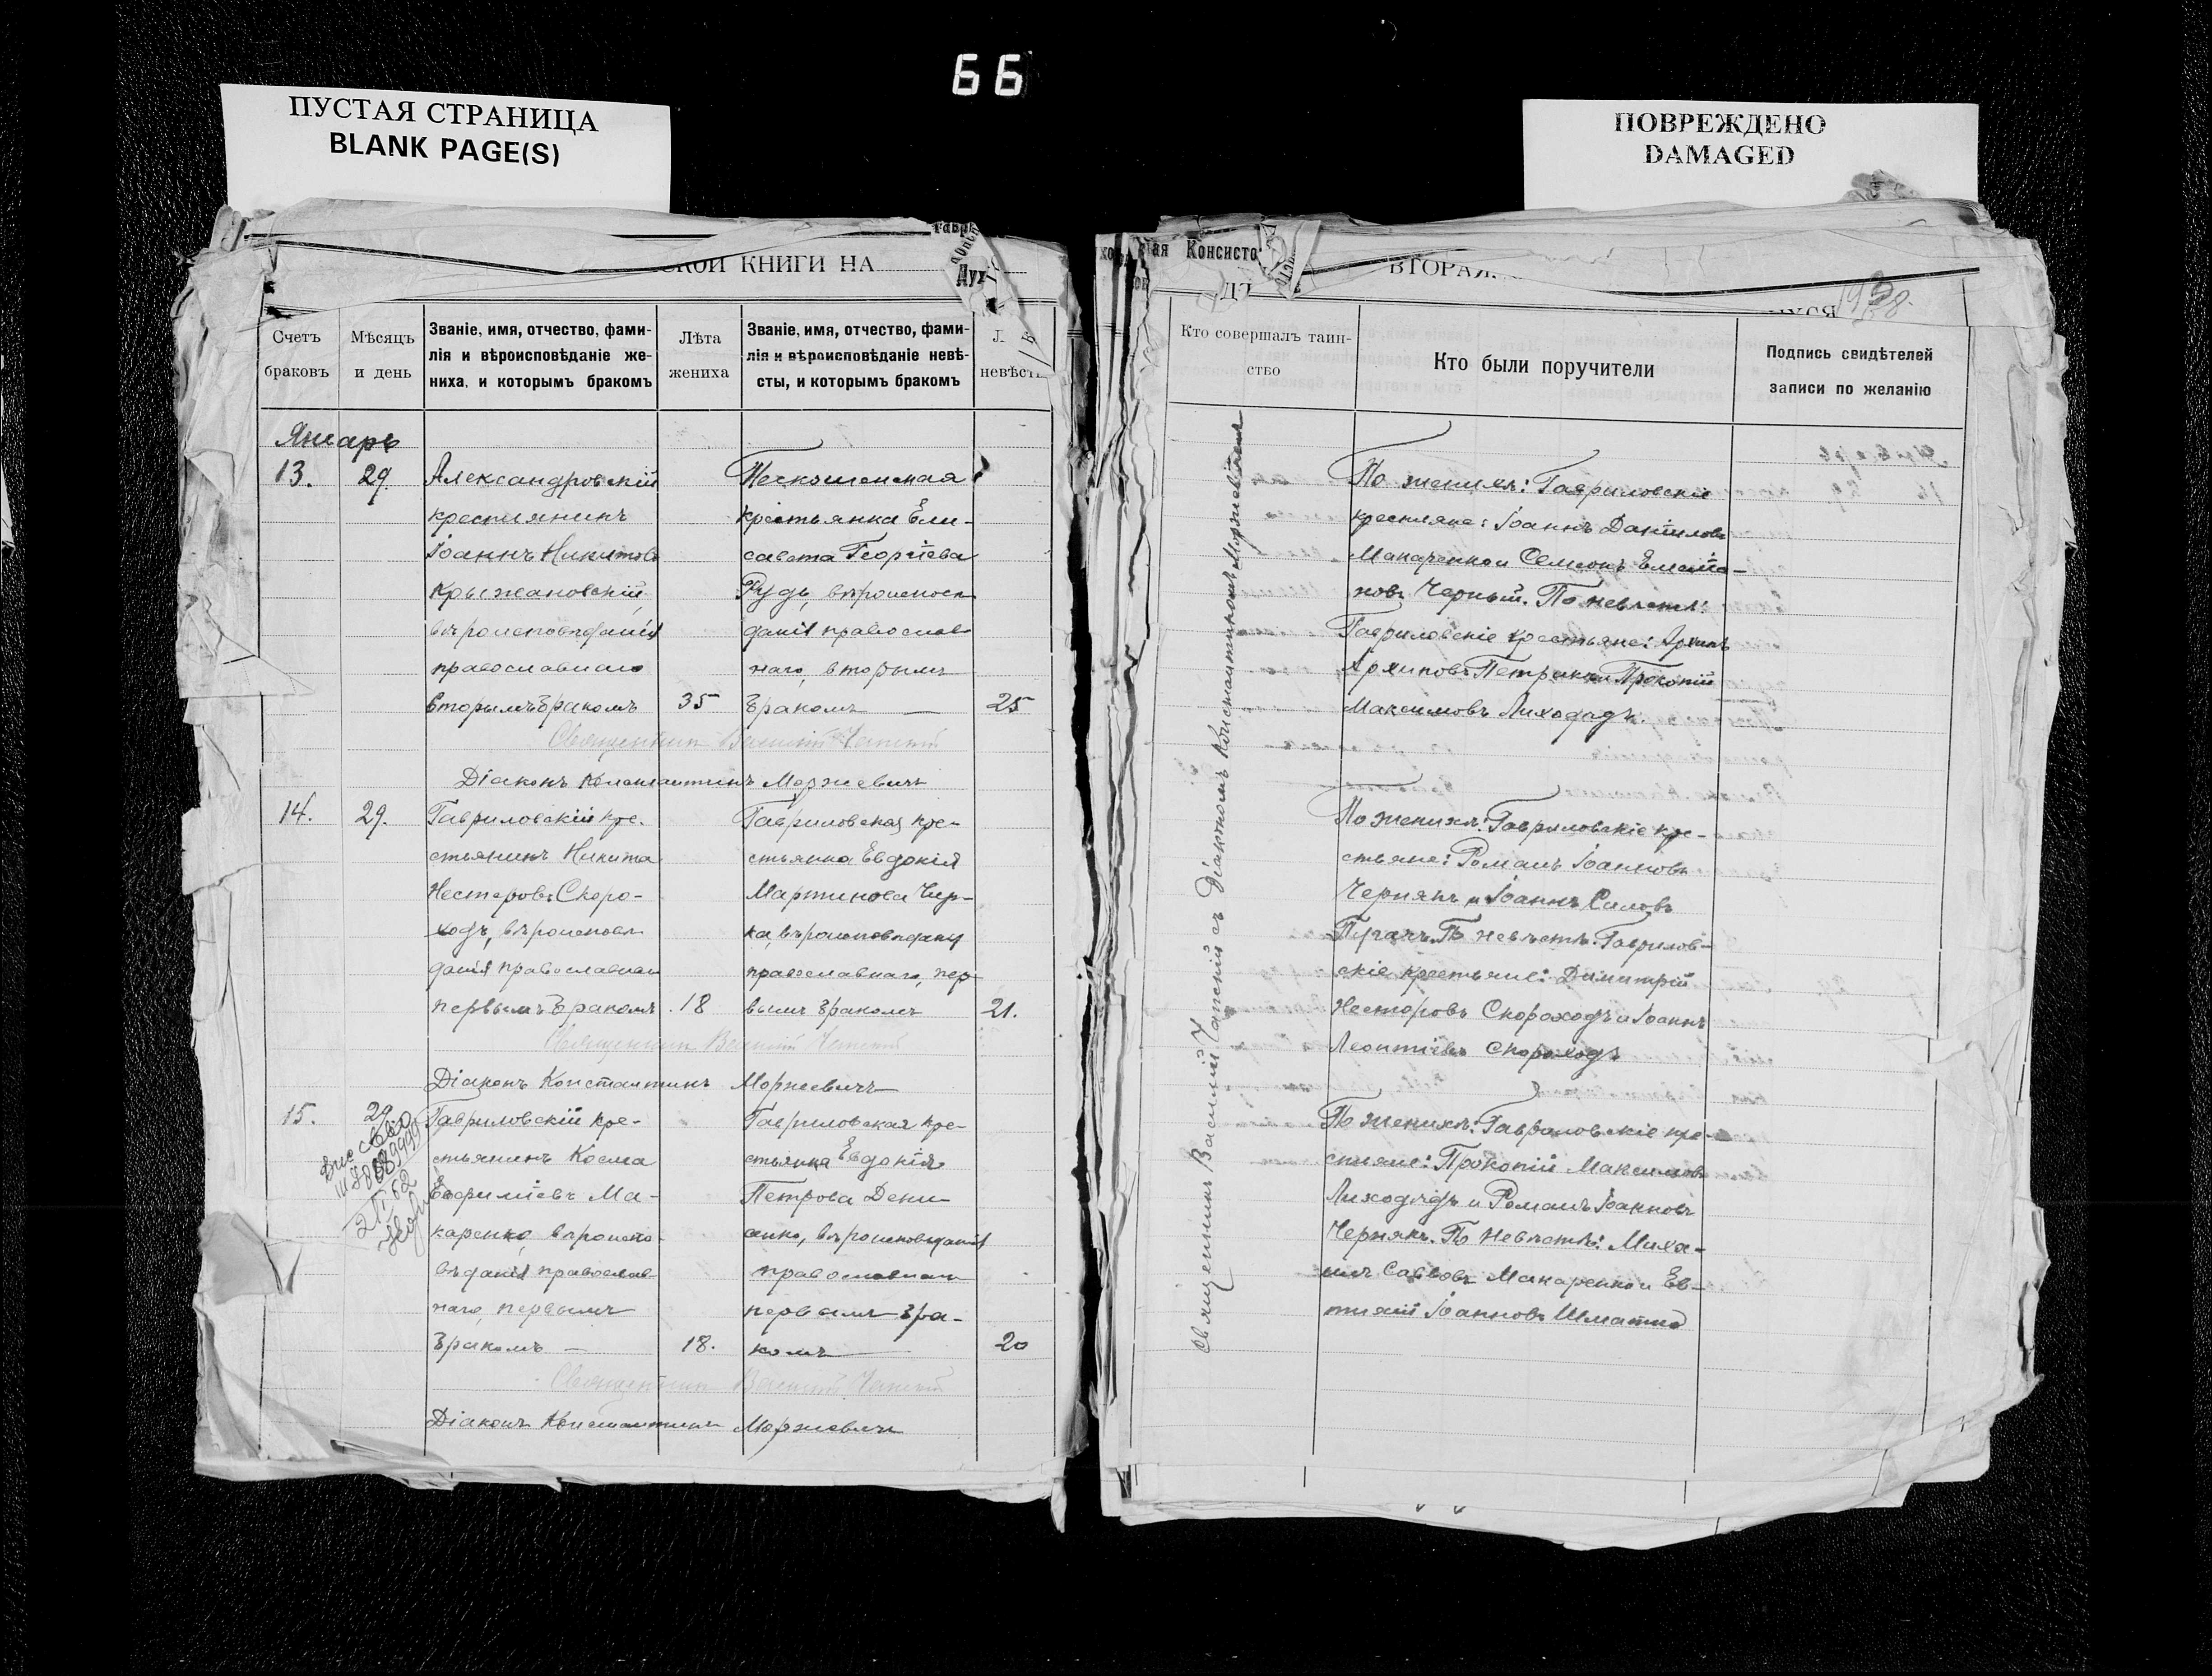 66
ПУСТАЯ СТРАНИЦА
BLANK PAGE(S)
ПОВРЕЖДЕНО
DAMAGED
СКОЙ КНИГИ НА
Счетъ
браковъ
Мѣсяцъ
и день
Званіе, имя, отчество, фами-
лія и вѣроисповѣданіе же-
ниха, и которымъ бракомъ
Лѣта
жениха
Званіе, имя, отчество, фами-
лія и вѣроисповѣданіе невѣ-
сты, и которымъ бракомъ
невѣсты
Январь
13.
29.
Александровскій
крестьянинъ
Іоаннъ Никитовъ
Крыжановскій,
вѣроисповѣданія
православнаго
вторымъ бракомъ
35
крестьянка Ели-
савета Георгіева
Рудь, вѣроисповѣ
данія православ
наго, вторымъ
бракомъ —
25
Священникъ Василій
Діаконъ Константинъ Моржевичъ
14.
29.
Гавриловскій кре-
стьянинъ Никита
Нестеровъ Скоро-
ходъ, вѣроисповѣ
данія православнаго
первымъ бракомъ
18
Гавриловская кре-
стьянка Евдокія
Мартинова Чир-
ка, вѣроисповѣданія
православнаго, пер
вымъ бракомъ
21.
Священникъ Василій
Діаконъ Константинъ Моржевичъ
15.
29
Гавриловскій кре-
стьянинъ Косма
Евфиміевъ Ма-
каренко, вѣроиспо-
вѣданія православ
наго, первымъ
бракомъ —
18.
Гавриловская кре-
стьянка Евдокія
Петрова Дени-
сенко, вѣроисповѣданія
православнаго
первымъ бра-
комъ
20
Священникъ Василій
Діаконъ Константинъ Моржевичъ
ая Консисто
ВТОРАЯ,
Кто совершалъ таин-
ство
Кто были поручители
Подпись свидѣтелей
записи по желанію
Священникъ Василій съ Діакономъ Константиномъ Моржевичемъ
По женихѣ: Гавриловскіе
крестьяне: Іоаннъ Даниловъ
Макаренко и Семеонъ Емелія-
новъ Черный. По невѣстѣ:
Гавриловскіе крестьяне: Архипъ
Архиповъ Петрикъ и Прокопій
Максимовъ Лиходѣдъ.
По женихѣ: Гавриловскіе кре-
стьяне: Романъ Іоанновъ
Чернякъ и Іоаннъ Силовъ
Пугачъ. По невѣстѣ: Гаврилов-
скіе крестьяне: Димитрій
Несторовъ Скороходъ и Іоаннъ
Леонтіевъ Скороходъ
По женихѣ: Гавриловскіе кре-
стьяне: Прокопій Максимовъ
Лиходѣдъ и Романъ Іоанновъ
Чернякъ. По невѣстѣ: Миха-
илъ Савовъ Макаренко и Ев-
тихій Іоанновъ Шматко